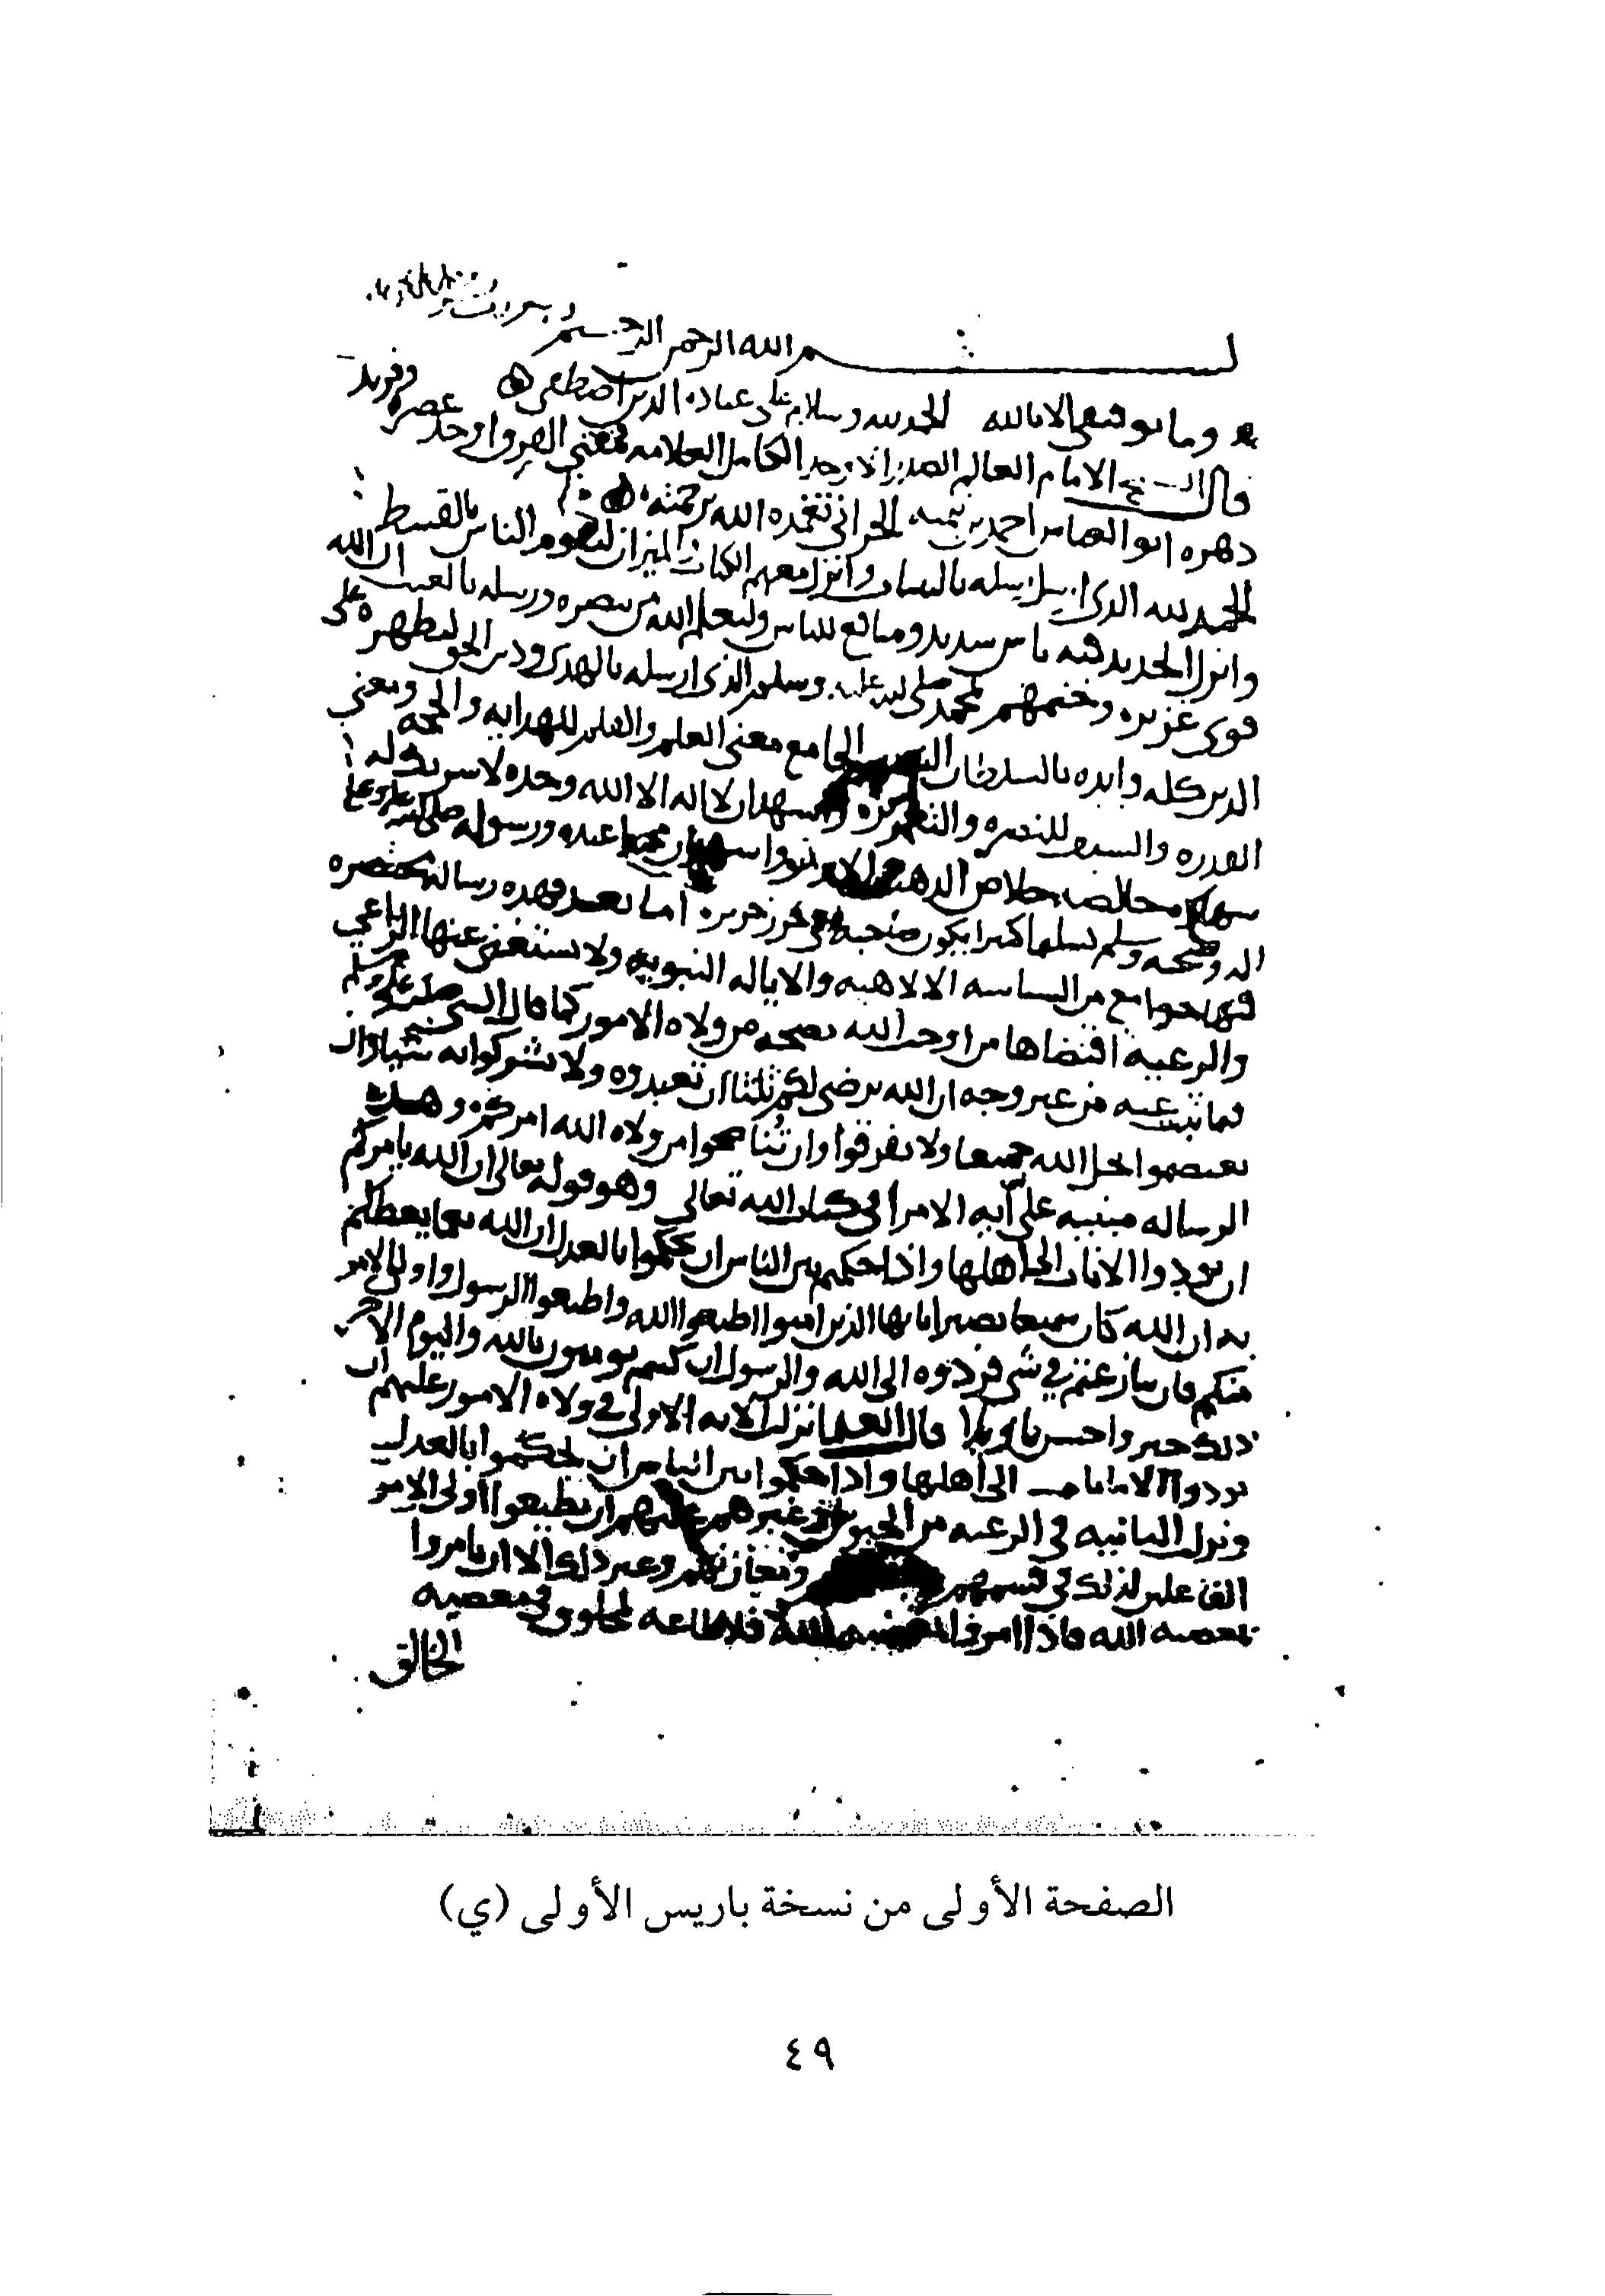 بسم الله الرحمن الرحيم
وما توفيقي الا بالله الحمد لله وسلام على عباده الذين اصطفى
قال الشيخ الامام العالم الصدر الاوحد الكامل العلامه مفتي الفرق اوحد عصره وفريد
دهره ابو العباس احمد بن تيميه الحراني تغمده الله برحمته
الحمد لله الذي ارسل رسله بالبينات وانزل معهم الكتاب والميزان ليقوم الناس بالقسط
وانزل الحديد فيه باس شديد ومنافع للناس وليعلم الله من ينصره ورسله بالغيب ان الله
قوي عزيز وختمهم بمحمد صلى الله عليه وسلم الذي ارسله بالهدى ودين الحق ليظهره على
الدين كله وايده بالسلطان النصير الجامع معنى العلم والقلم للهدايه والحجه ومعنى
القدره والسيف للنصره والتعزير واشهد ان لا اله الا الله وحده لا شريك له
شهاده خالصه خلاص الذهب واشهد ان محمدا عبده ورسوله صلى الله عليه وعلى
اله وصحبه وسلم تسليما كثيرا يكون صاحبها في حرز حريز اما بعد فهذه رساله مختصره
فيها جوامع من السياسه الالاهيه والاياله النبويه ولا يستغني عنها الراعي
والرعيه اقتضاها من اوجب الله نصحه من ولاه الامور كما قال النبي صلى الله عليه وسلم
فما ثبت عنه من غير وجه ان الله يرضى لكم ثلثا ان تعبدوه ولا تشركوا به شيا وان
تعتصموا بحبل الله جميعا ولا تفرقوا وان تناصحوا من ولاه الله امركم وهذه
الرساله مبنيه على آيه الامرا في كتاب الله تعالى وهو قوله تعالى ان الله يامركم
ان تودوا الامانات الى اهلها واذا حكمتم بين الناس ان تحكموا بالعدل ان الله نعما يعظكم
به ان الله كان سميعا بصيرا يا يها الذين امنوا اطيعوا الله واطيعوا الرسول واولي الامر
منكم فان تنازعتم في شي فردوه الى الله والرسول ان كنتم تومنون بالله واليوم الاخر
ذلك خير واحسن تاويلا قال العلما نزلت الآيه الاولى في ولاه الامور عليهم ان
يودوا الامانات الى اهلها واذا حكموا بين الناس ان يحكموا بالعدل
ونزلت الثانيه في الرعيه من الجيوش وغيرهم عليهم ان يطيعوا اولي الامر
الفاعلين لذلك في قسمهم ومغازيهم وغير ذلك الا ان يامروا
بمعصيه الله فاذا امروا بمعصيه الله فلا طاعه لمخلوق في معصيه
الخالق
الصفحة الأولى من نسخة باريس الأولى (ي)
٤٩